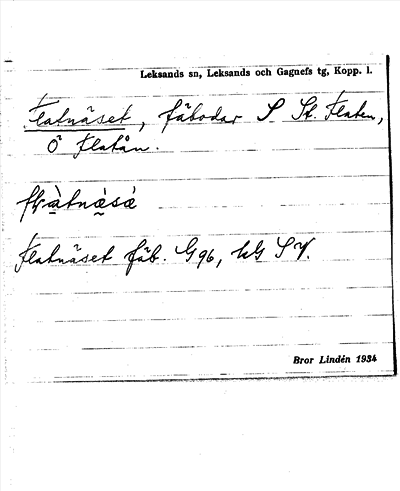 Leksands sn, Leksands och Gagnefs tg, Kopp. l.
Flatnäset, fäbodar S St. Flaten,
Ö Flatån.
Flatnäset fäb. G96, hG SV.
Bror Lindén 1934